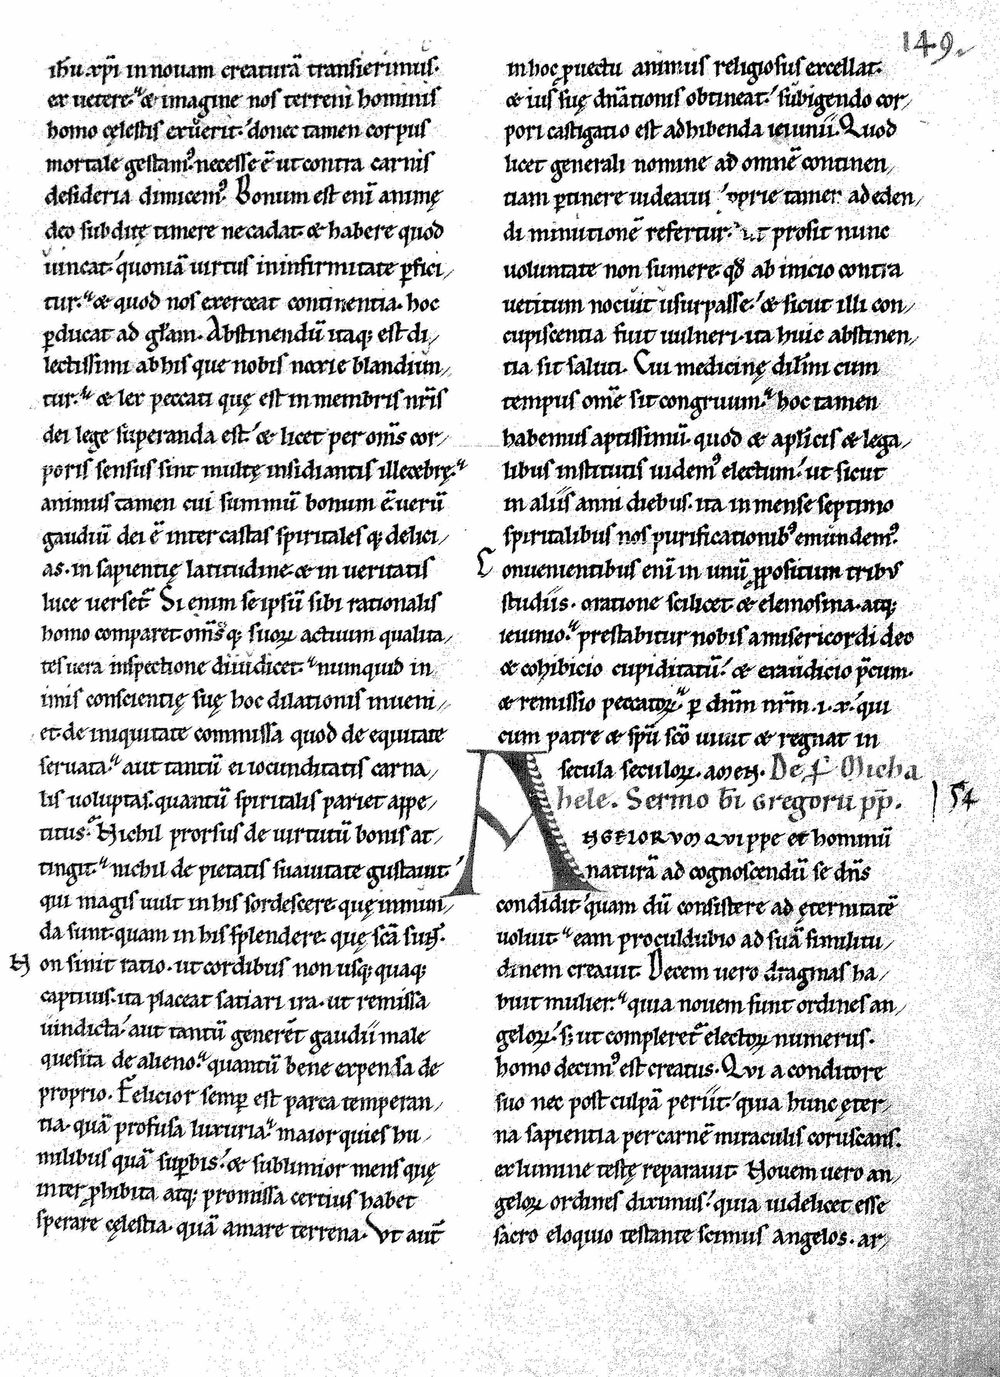 149.
ih̄u xp̄i in nouam creaturā transierimus.
ex uetere. & imagine nos terreni hominis
homo cęlestis exuerit. donec tamen corpus
mortale gestam᷒. necesse ē ut contra carnis
desideria dimicem᷒. Bonum est enī animę
deo subditę timere ne cadat & habere quod
uincat. quoniā uirtus in infirmitate ꝑfici/
tur. & quod nos exerceat continentia. hoc
ꝑducat ad gl̄am. Abstinendū itaq; est di/
lectissimi ab his que nobis noxie blandiun/
tur. & lex peccati quę est in membris nr̄is
dei lege superanda est. & licet per om̄s cor/
poris sensus sint multę insidiantis illecebrę.
animus tamen cui summū bonum & uerū
gaudiū dei ē inter castas spiritalesq; delici/
as. in sapientię latitudine & in ueritatis
luce uerset᷑. Si enim se ipsū sibi rationalis
homo comparet om̄sq; suoꝝ actuum qualita/
tes uera inspectione diiudicet. numquid in
imis conscientię suę hoc dilationis inueni/
et de iniquitate commissa quod de equitate
seruata. aut tantū ei iocunditatis carna/
lis uoluptas. quantū spiritalis pariet appe/
titus. Nichil prorsus de uirtutū bonis at/
tingit. nichil de pietatis suauitate gustauit.
qui magis uult in his sordescere quę inmun/
da sunt. quam in his splendere. quę sc̄a sunt.
Non sinit ratio. ut cordibus non usq; quaq;
captiuis. ita placeat satiari ira. ut remissa
uindicta. aut tantū generet gaudiū male
quesita de alieno. quantū bene expensa de
proprio. Felicior semꝑ est parca temperan/
tia. quā profusa luxuria. maior quies hu/
milibus quā suꝑbis. & sublimior mens quę
inter ꝓhibita atq; promissa certius habet
sperare cęlestia. quā amare terrena. Vt aut̄
in hoc ꝓuectu animus religiosus excellat.
& ius suę dn̄ationis obtineat. subigendo cor/
pori castigatio est adhibenda ieiunii. Quod
licet generali nomine ad omnē continen/
tiam ꝑtinere uideatur ꝓprie tamen ad eden/
di minutionē refertur. ut prosit nunc
uoluntate non sumere. qd̄ ab inicio contra
uetitum nocuit usurpasse. & sicut illi con/
cupiscentia fuit uulneri. ita huic abstinen/
tia sit saluti. Cui medicinę dil̄mi cum
tempus om̄e sit congruum. hoc tamen
habemus aptissimū. quod & apl̄icis & lega/
libus institutis uidem᷒ electum. ut sicut
in aliis anni diebus. ita in mense septimo
spiritalibus nos purificationib᷒ emundem᷒.
Conuenientibus enī in unū ꝓpositum tribus
studiis. oratione scilicet & elemosina. atq;
ieiunio. prestabitur nobis a misericordi deo
& cohibicio cupiditatū. & exaudicio p̄cum.
& remissio peccatoꝝ. ꝑ dn̄m nr̄m .i. x. qui
cum patre & sp̄u sc̄o uiuit & regnat in
secula seculoꝝ. amen. De s̄ Micha
hele. Sermo b̄i Gregorii pp̄.
154
ANGELORVM QVIppe et hominū
naturā ad cognoscendū se dn̄s
condidit quam dū consistere ad ęternitatē
uoluit. eam proculdubio ad suā similitu/
dinem creauit. Decem uero dragmas ha/
buit mulier. quia nouem sunt ordines an/
geloꝝ. s; ut compleret᷑ electoꝝ numerus.
homo decim᷒ est creatus. Qvi a conditore
suo nec post culpā periit. quia hunc ęter/
na sapientia per carnē miraculis coruscans.
ex lumine testę reparauit. Nouem uero an/
geloꝝ ordines diximus. quia uidelicet esse
sacro eloquio testante scimus angelos. ar/